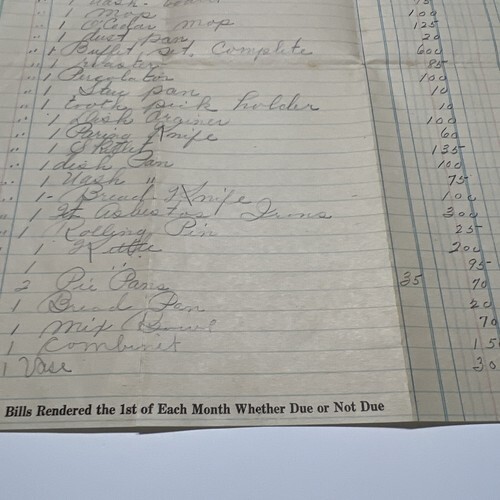 1 Wash board 75
" 1 mop 100
" 1 O'Cedar mop 125
" 1 dust pan 20
" 1 Buffet set, Complete 600
" 1 roaster 85
" 1 Percolator 100
" 1 Stew pan 10
" 1 tooth pick holder 10
" 1 Dish drainer 100
" 1 Paring Knife 60
" 1 Skillet 135
" 1 dish Pan 100
" 1 Wash " 75
" 1 - Bread Knife - 100
" 1 Asbestos Irons 300
" 1 Rolling Pin 25
1 Kettle 200
1 " 95
2 Pie Pans 35 70
1 Bread Pan 20
1 Mix Bowl 70
1 Combinet 15
1 Vase 30
Bills Rendered the 1st of Each Month Whether Due or Not Due